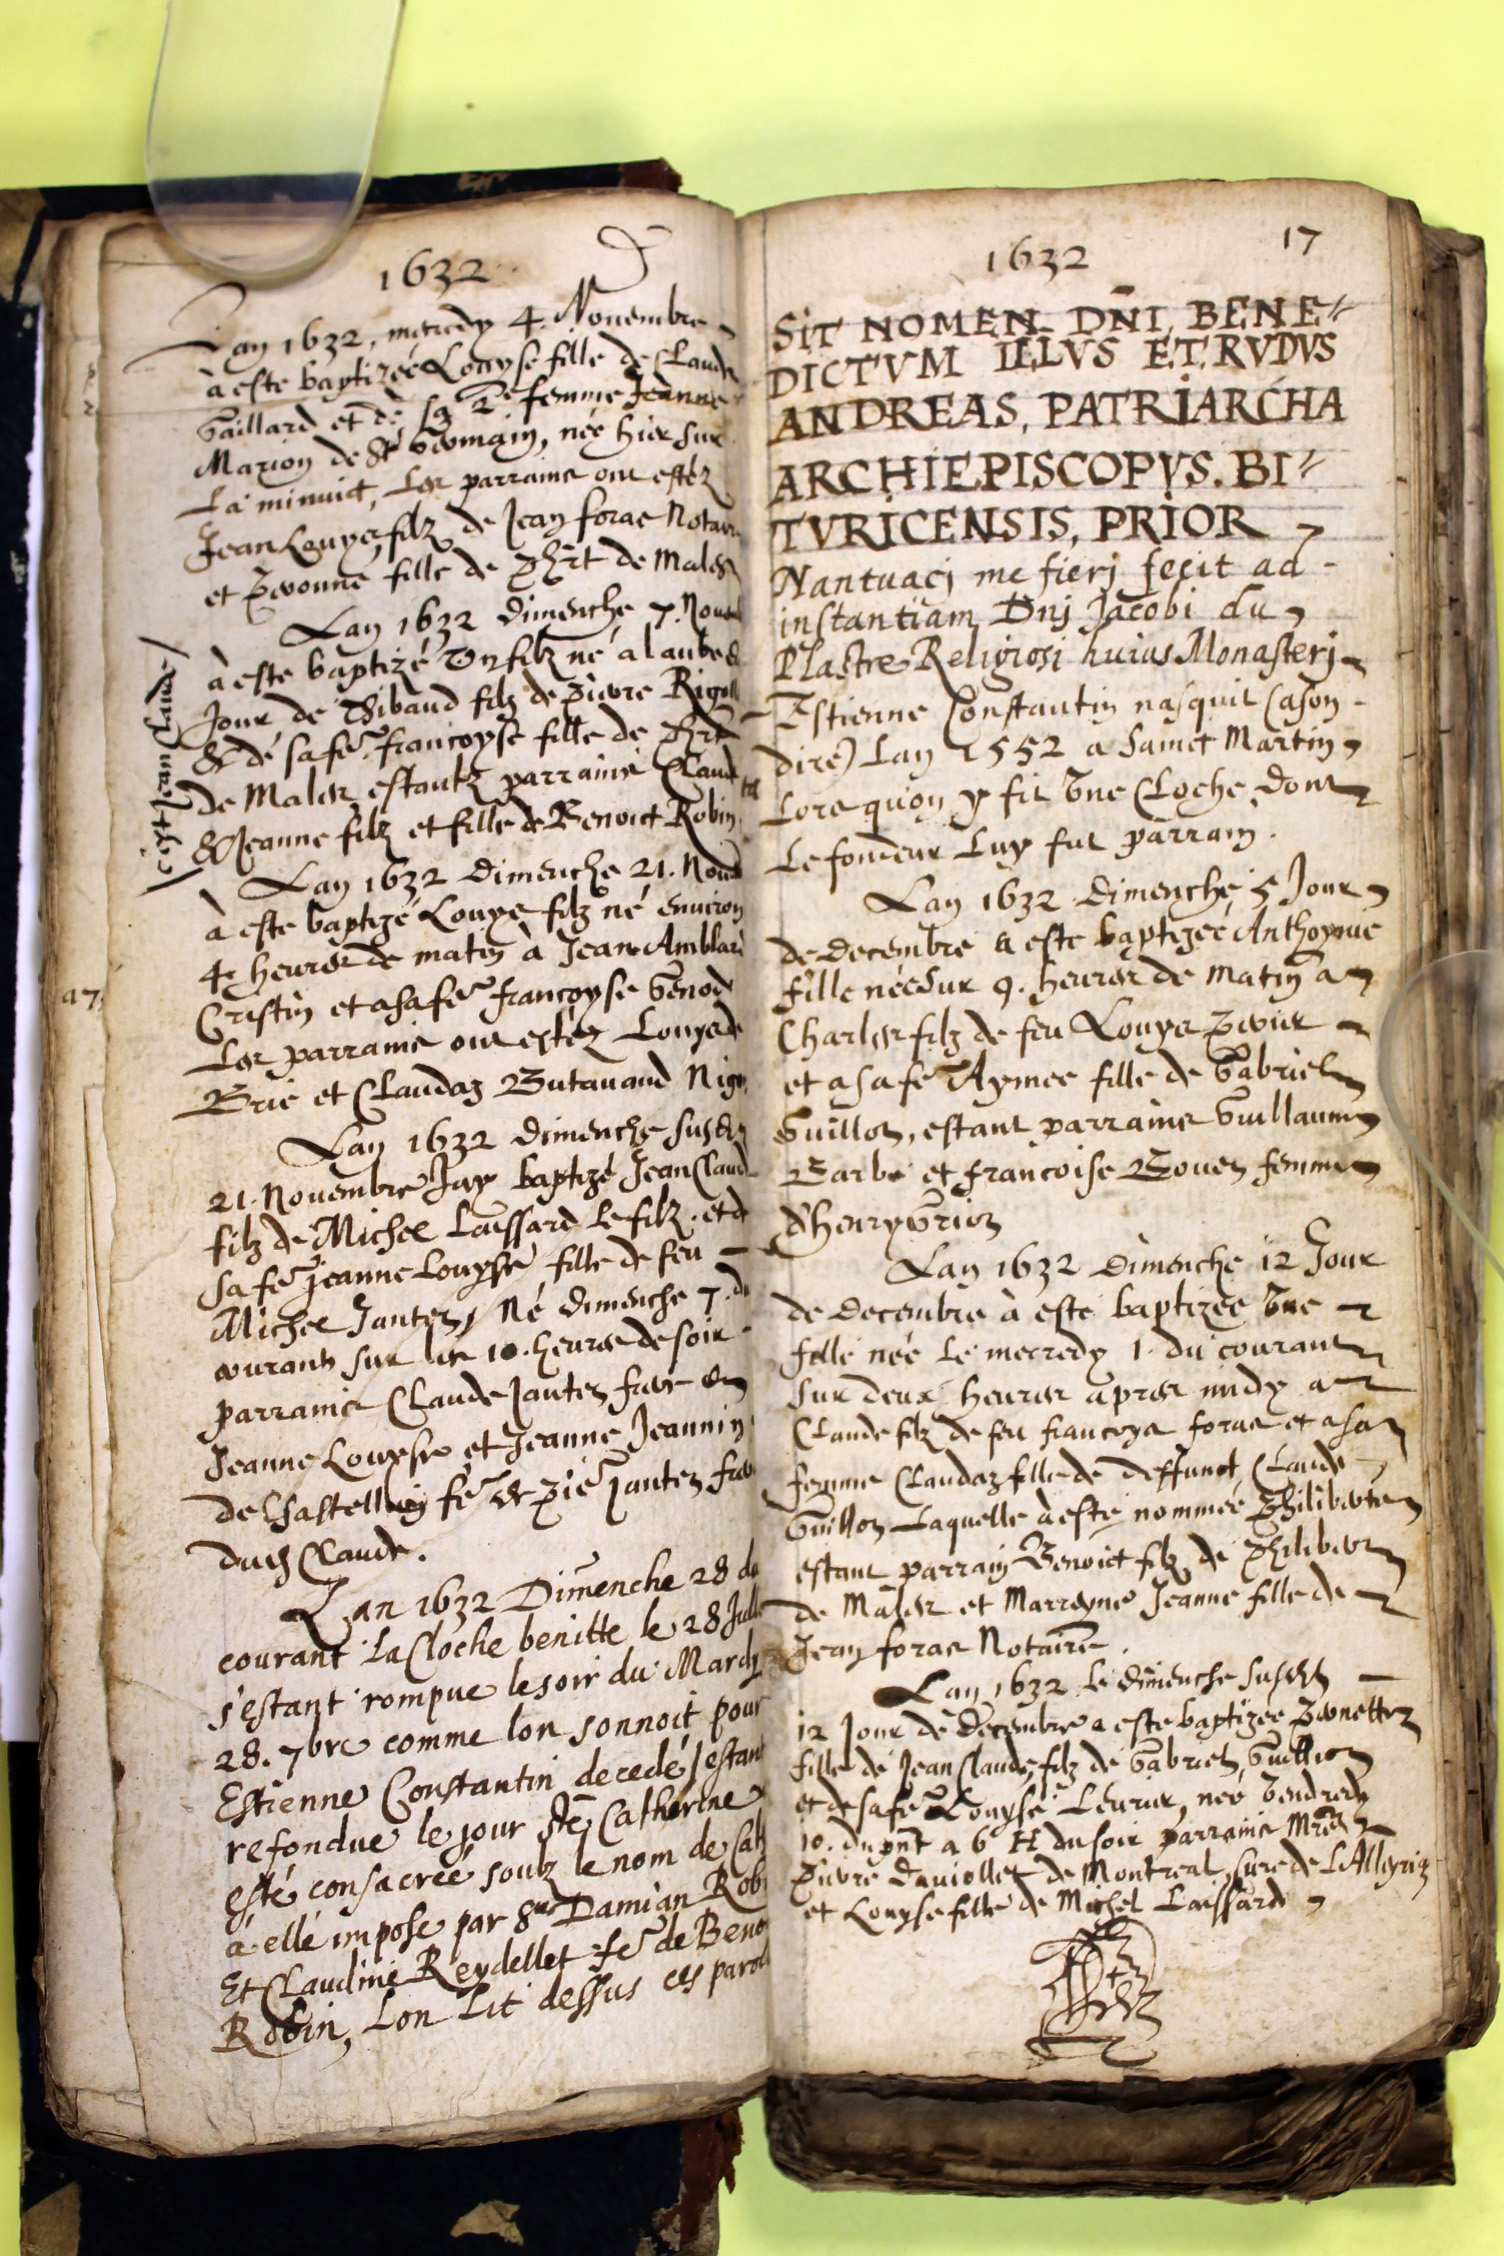 1632
Lan 1632, mecredy 4. Novembre
à esté baptizée Louyse fille de Claude
Gaillard et de sa 2e femme Jeanne
Marion de St Germain, née hier sur
La minuict, Les parrains ont estéz
Jean Louys filz de Jean foras Notaire
et Pernonne fille de Phrt de Males
Lan 1632 dimenche 7. Nouem
à esté baptizé Un filz né a laube d
Jour de Thibaud filz de Pierre Rigoll
& de sa fe francoyse fille de Phrt
de Males estantz parrains Claude
& Jeanne filz et fille de Benoict Robin
/cest Jean Claude/
Lan 1632 dimenche 21. Noue
à esté baptizé Louys filz né enuiron
4 heures de matin à Jean Amblard
Cristin et a sa fe francoyse Genod
Les parrains ont estéz Louys de
Brie et Claudaz Butauand
a 7
Lan 1632 dimenche susdit
21. Nouembre Jay baptizé Jean Claude
filz de Michel Laissard le filz. et d
sa fe Jeanne Louyse fille de feu
Michel Jantet, Né dimenche 7. du
courant sur les 10. heures de soir
parrains Claude Jantet frere
Jeanne Louyse et Jeanne Jeannin
de Chastellion fe de Pie Jantet frere
dudt Claude.
Lan 1632 Dimenche 28 du
courant La Cloche benitte le 28 Julle
s'estant rompue le soir du Mardy
28. 7bre comme lon sonnoit pour
Estienne Constantin decedé, estant
refondue le jour Ste Catherine
esté consacréé soubz le nom de Cat
à ellé imposé par Damian Robi
Et Claudine Reydellet fe de Beno
Robin, Lon Lit dessus ces parol
1632
17
SIT NOMEN DNI BENE
DICTVM ILLVS ET RVDVS
ANDREAS, PATRIARCHA
ARCHIEPISCOPVS. BI
TVRICENSIS, PRIOR
Nantuaci me fieri fecit ad
instantiam Dni Jacobi du
Plastre Religiosi huius Monasterj
Estienne Constantin nasquit (ason
dire) Lan 1552 a Sainct Martin
Lors quon y fit Une Cloche, dont
Le fondeur Luy fut parrain.
Lan 1632 dimenche 5 Jour
de decembre a esté baptizeé Anthoyne
fille née sur 9. heures de matin a
Charles filz de feu Louys
et a sa fe Aymee fille de Gabriel
Guillot, estant parrains Guillaume
Barbe et francoise Bouez femme
d'Henry
Lan 1632 dimenche 12 Jour
de decembre à esté baptizeé Une
fille née Le mecredy 1. du courant
sur deux heures apres midy a
Claude filz de feu francoys foras et a sa
femme Claudaz fille de deffunct Claude
Guillot Laquelle à esté nommée Philiberte
estant parrain Benoict filz de Philibert
de Males et Marreyne Jeanne fille de
Jean foras Notaire.
Lan 1632 le dimenche susdit
12 Jour de decembre a esté baptizée Pernette
fille de Jean Claude filz de Gabriel Guillot
et de sa fe Louyse Leurier, neé Vendredy
10. du pnt a 6 H du soir parrains Mre
Pierre Dauiollet de Montreal, Curé de
et Louyse fille de Michel Laissard